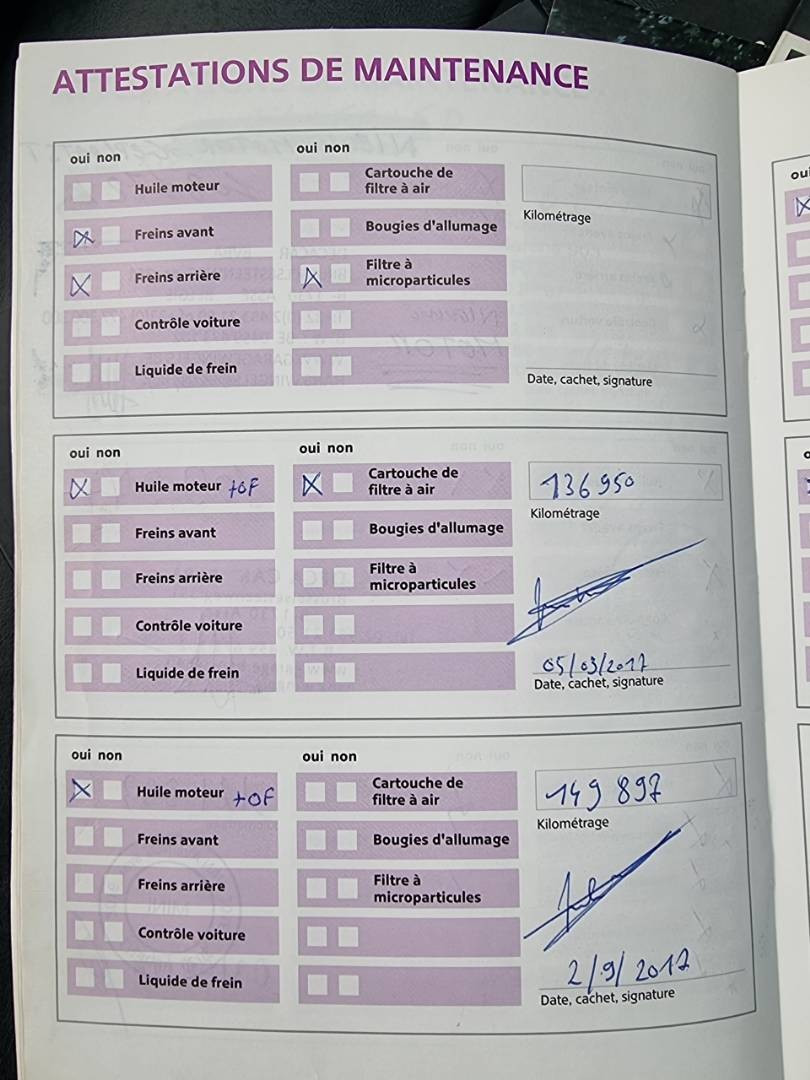 ATTESTATIONS DE MAINTENANCE
oui non
oui non
Huile moteur
Cartouche de
filtre à air
Kilométrage
Freins avant
Bougies d'allumage
Freins arrière
Filtre à
microparticules
Contrôle voiture
Liquide de frein
Date, cachet, signature
oui non
oui non
Huile moteur +OF
Cartouche de
filtre à air
136 950
Kilométrage
Freins avant
Bougies d'allumage
Freins arrière
Filtre à
microparticules
Contrôle voiture
Liquide de frein
05/03/2017
Date, cachet, signature
oui non
oui non
Huile moteur +OF
Cartouche de
filtre à air
149 897
Kilométrage
Freins avant
Bougies d'allumage
Freins arrière
Filtre à
microparticules
Contrôle voiture
Liquide de frein
2/9/2017
Date, cachet, signature